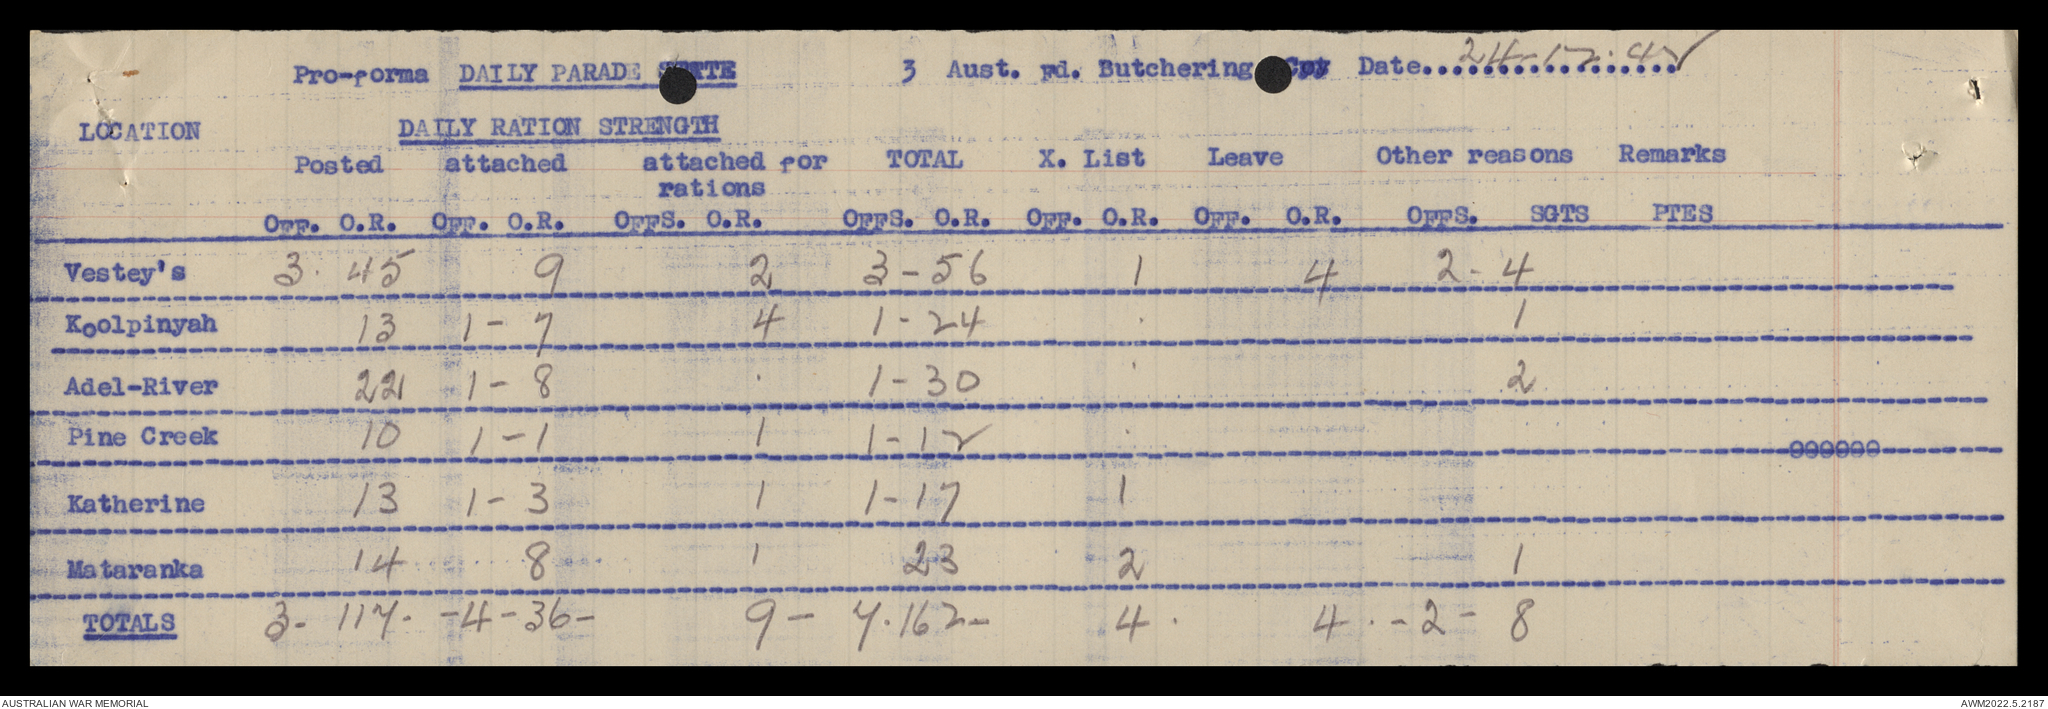 Pro-forma DAILY PARADE STATE 3 Aust. Fd. Butchering Coy Date 24.12.42
LOCATION DAILY RATION STRENGTH
Posted attached attached for TOTAL X. List Leave Other reasons Remarks
rations
Off. O.R. Off. O.R. Offs. O.R. Offs. O.R. Off. O.R. Off. O.R. Offs. SGTS PTES
Vestey's 3. 45 9 2 3 - 56 1 4 2 - 4
Koolpinyah 13 1 - 7 4 1 - 24 1
Adel-River 22 1 - 8 1 - 30 2
Pine Creek 10 1 - 1 1 1 - 12
Katherine 13 1 - 3 1 1 - 17 1
Mataranka 14 8 1 23 2 1
TOTALS 3. 117. - 4 - 36 - 9 - 7. 162 - 4. 4. - 2 - 8
AUSTRALIAN WAR MEMORIAL AWM2022.5.2187